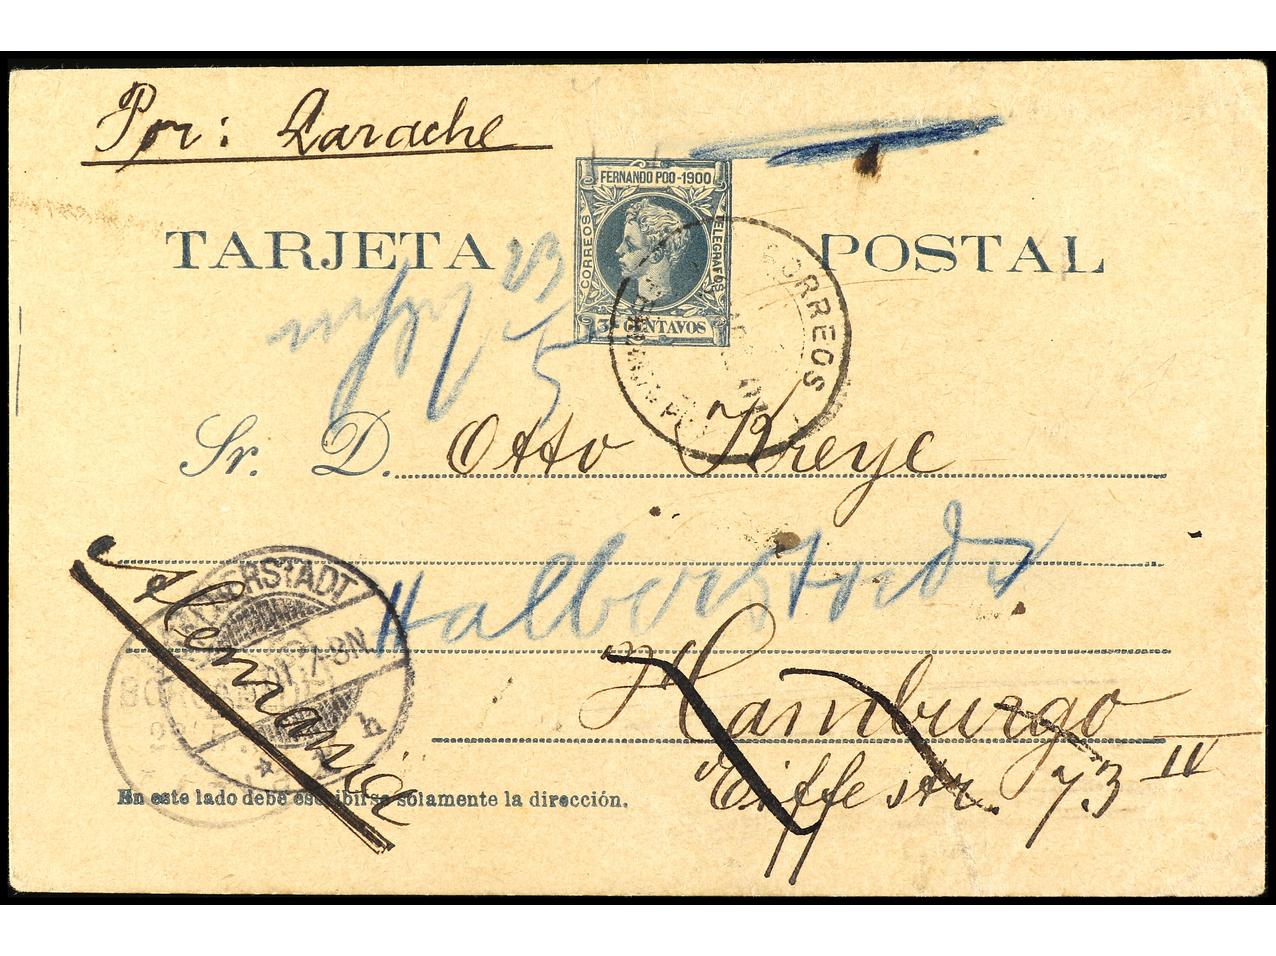 Por: Larache
FERNANDO POO-1900
CORREOS
TELEGRAFOS
3 CENTAVOS
TARJETA POSTAL
CORREOS
23
5
Sr. D. Otto Kreye
Halberstadt
HALBERSTADT
7-8N
h
Alemania
Hamburgo
Eiffestr. 73 IV
En este lado debe escribirse solamente la dirección.